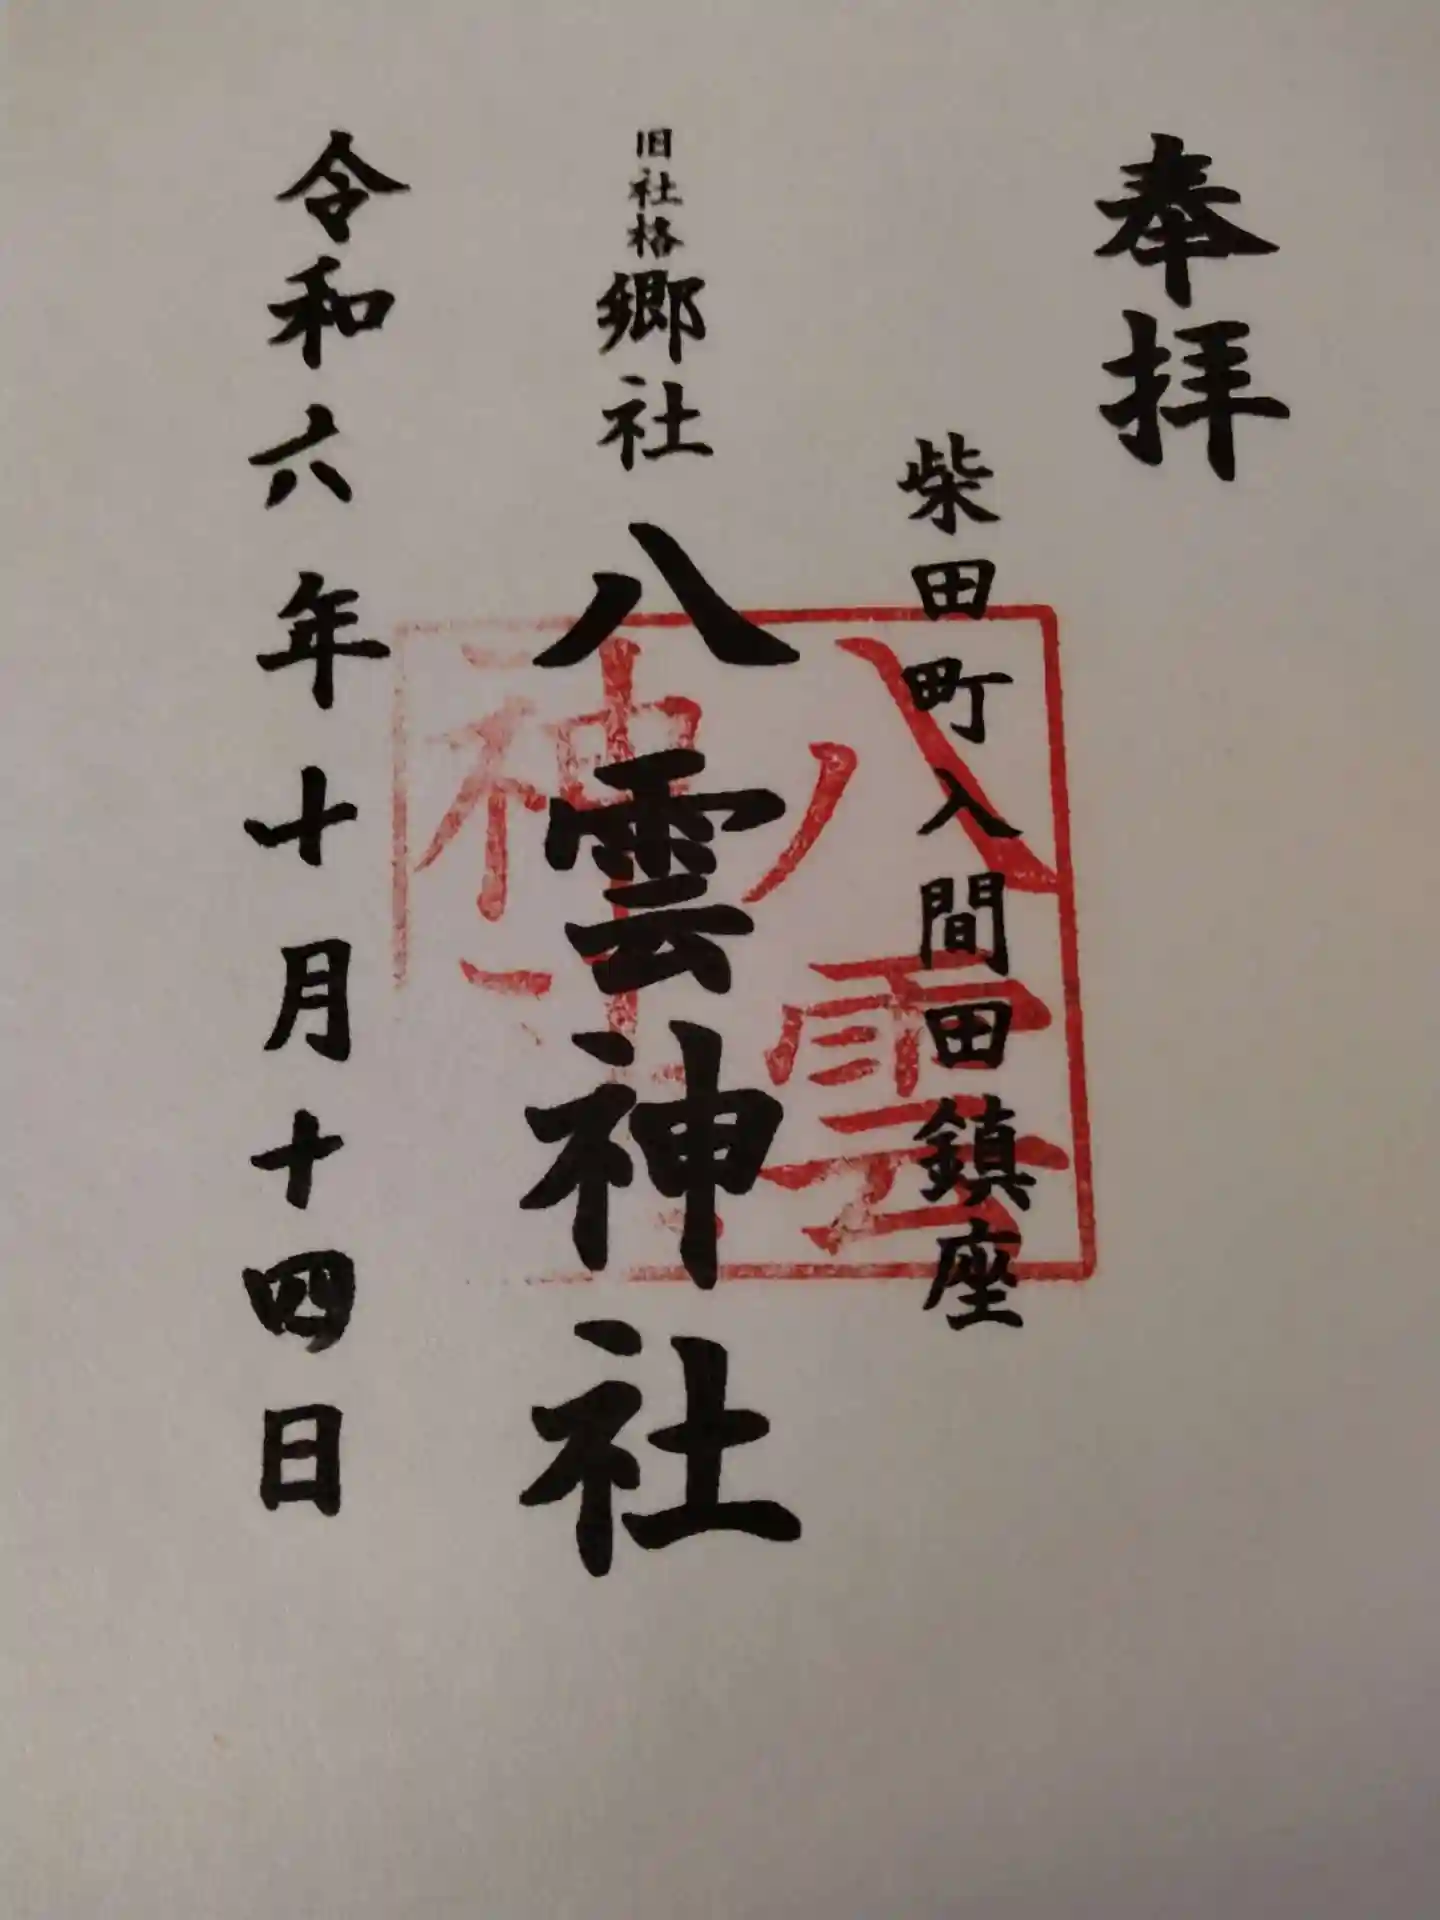 奉拝
柴田町入間田鎮座
旧社格郷社八雲神社
令和六年十月十四日
八雲
神社